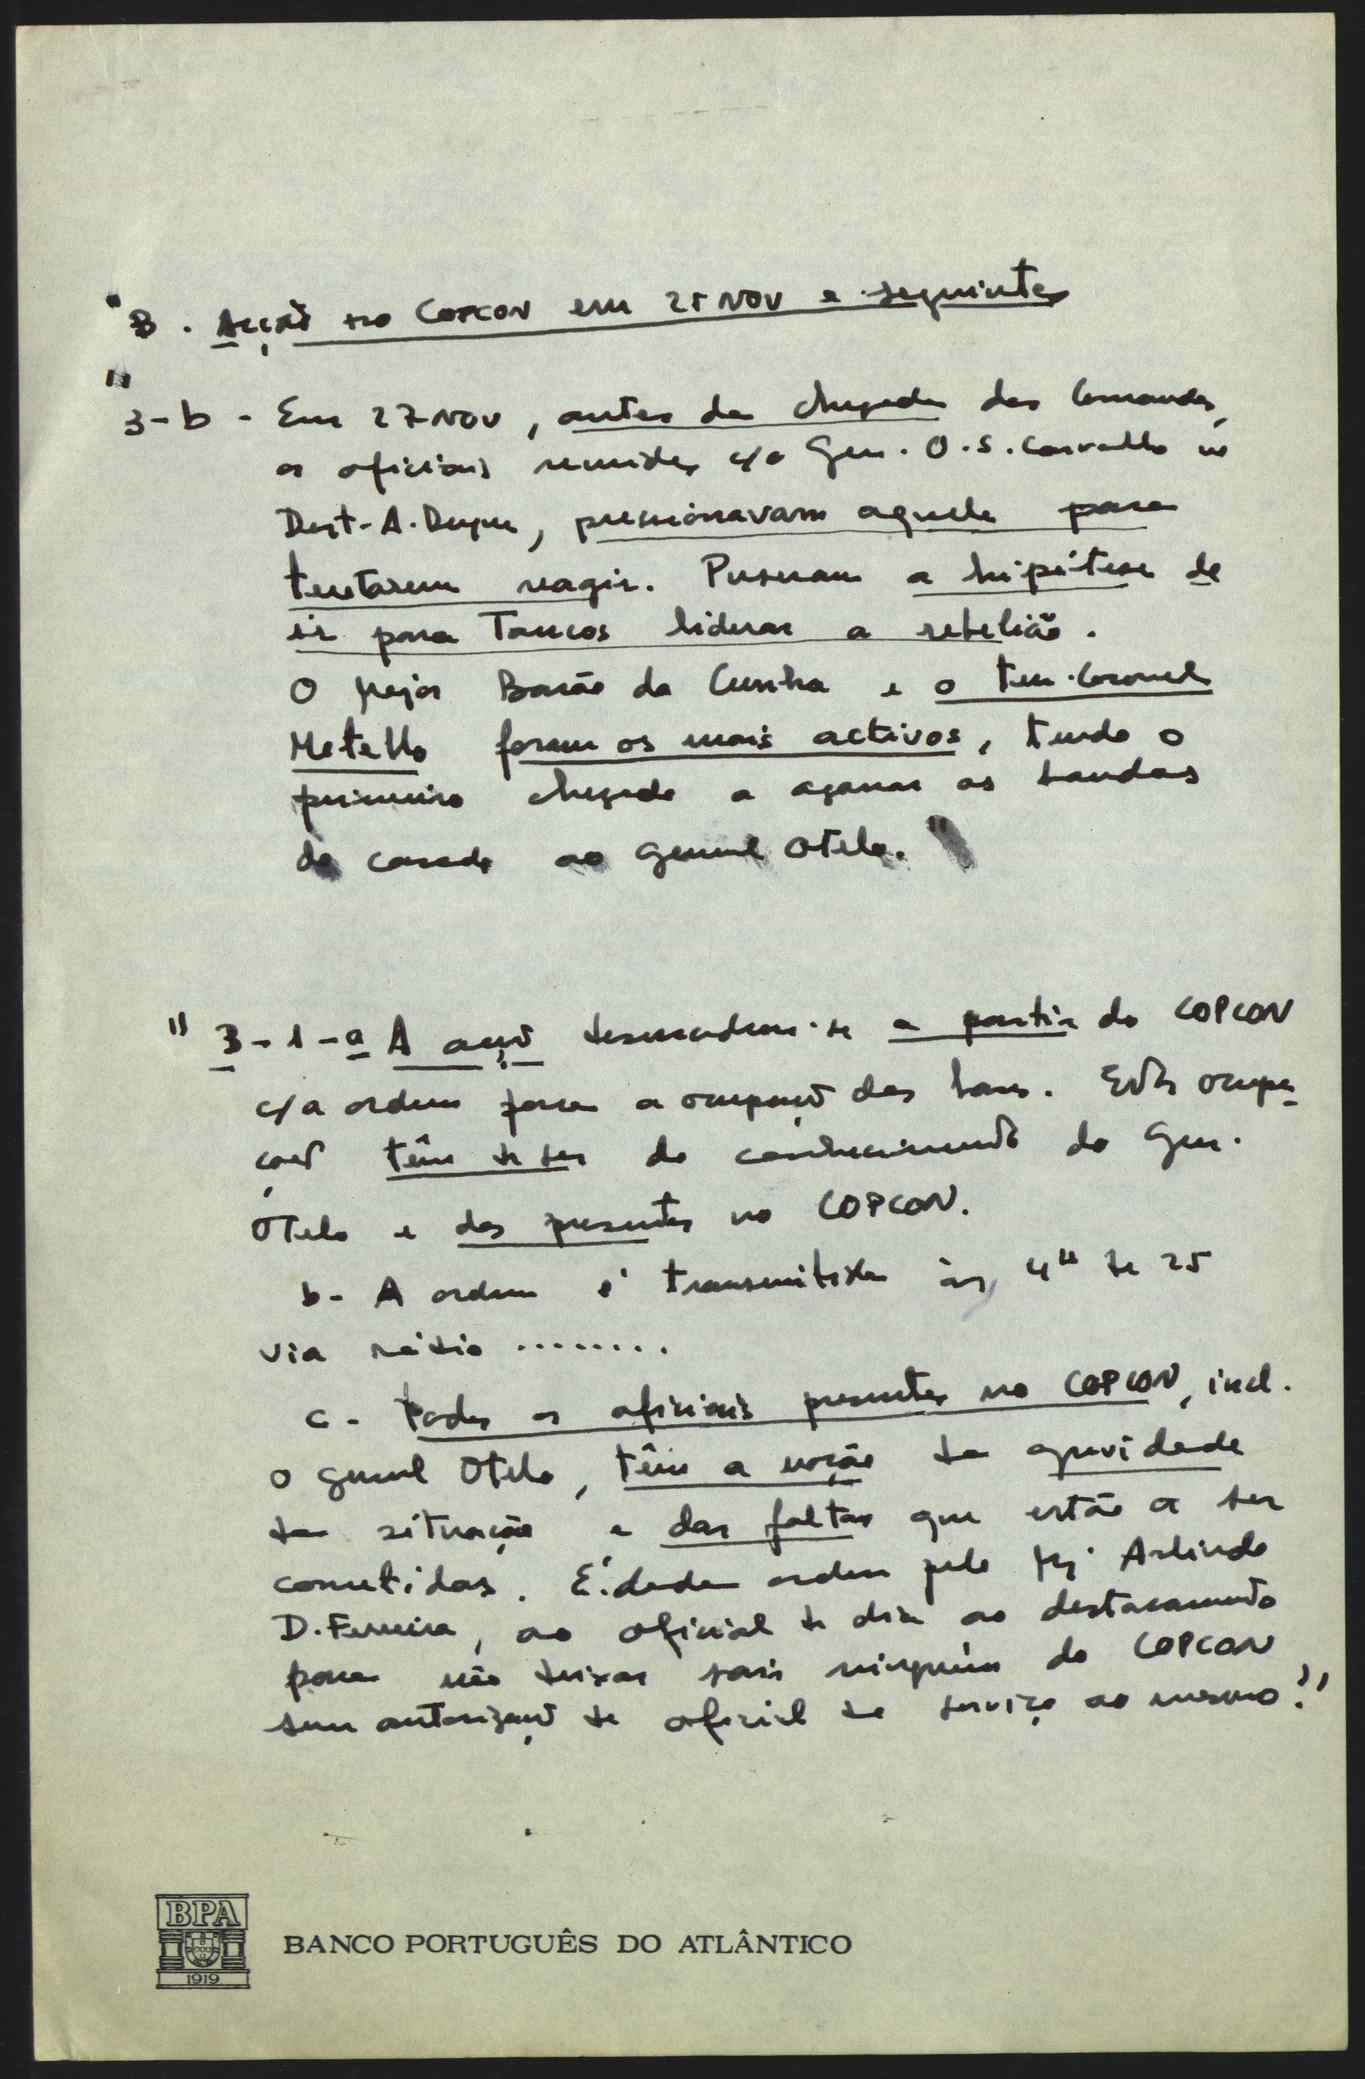 "B. Acção no COPCON em 25 NOV e seguintes
"3-b - Em 27 NOV, antes da chegada dos Comandos,
os oficiais reunidos c/o Gen. O.S. Carvalho no
Dest. A. Duque, pressionavam aquele para
tentarem reagir. Puseram a hipótese de
ir para Tancos liderar a rebelião.
O Major Barão da Cunha e o Ten. Coronel
Metello foram os mais activos, tendo o
primeiro chegado a agarrar as bandas
do casaco ao general Otelo."
"3-1-a A acção desencadeou-se a partir do COPCON
c/a ordem para a ocupação das bases. Estas ocupa-
ções têm de ser do conhecimento do Gen.
Otelo e dos presentes no COPCON.
b- A ordem é transmitida às 4H de 25
via rádio ........
c- Todos os oficiais presentes no COPCON, incl.
o general Otelo, têm a noção da gravidade
da situação e das faltas que estão a ser
cometidas. É dada ordem pelo Mj Arlindo
D. Ferreira, ao oficial de dia ao destacamento
para não deixar sair ninguém do COPCON
sem autorização do oficial de serviço ao mesmo."
BPA
1919
BANCO PORTUGUÊS DO ATLÂNTICO